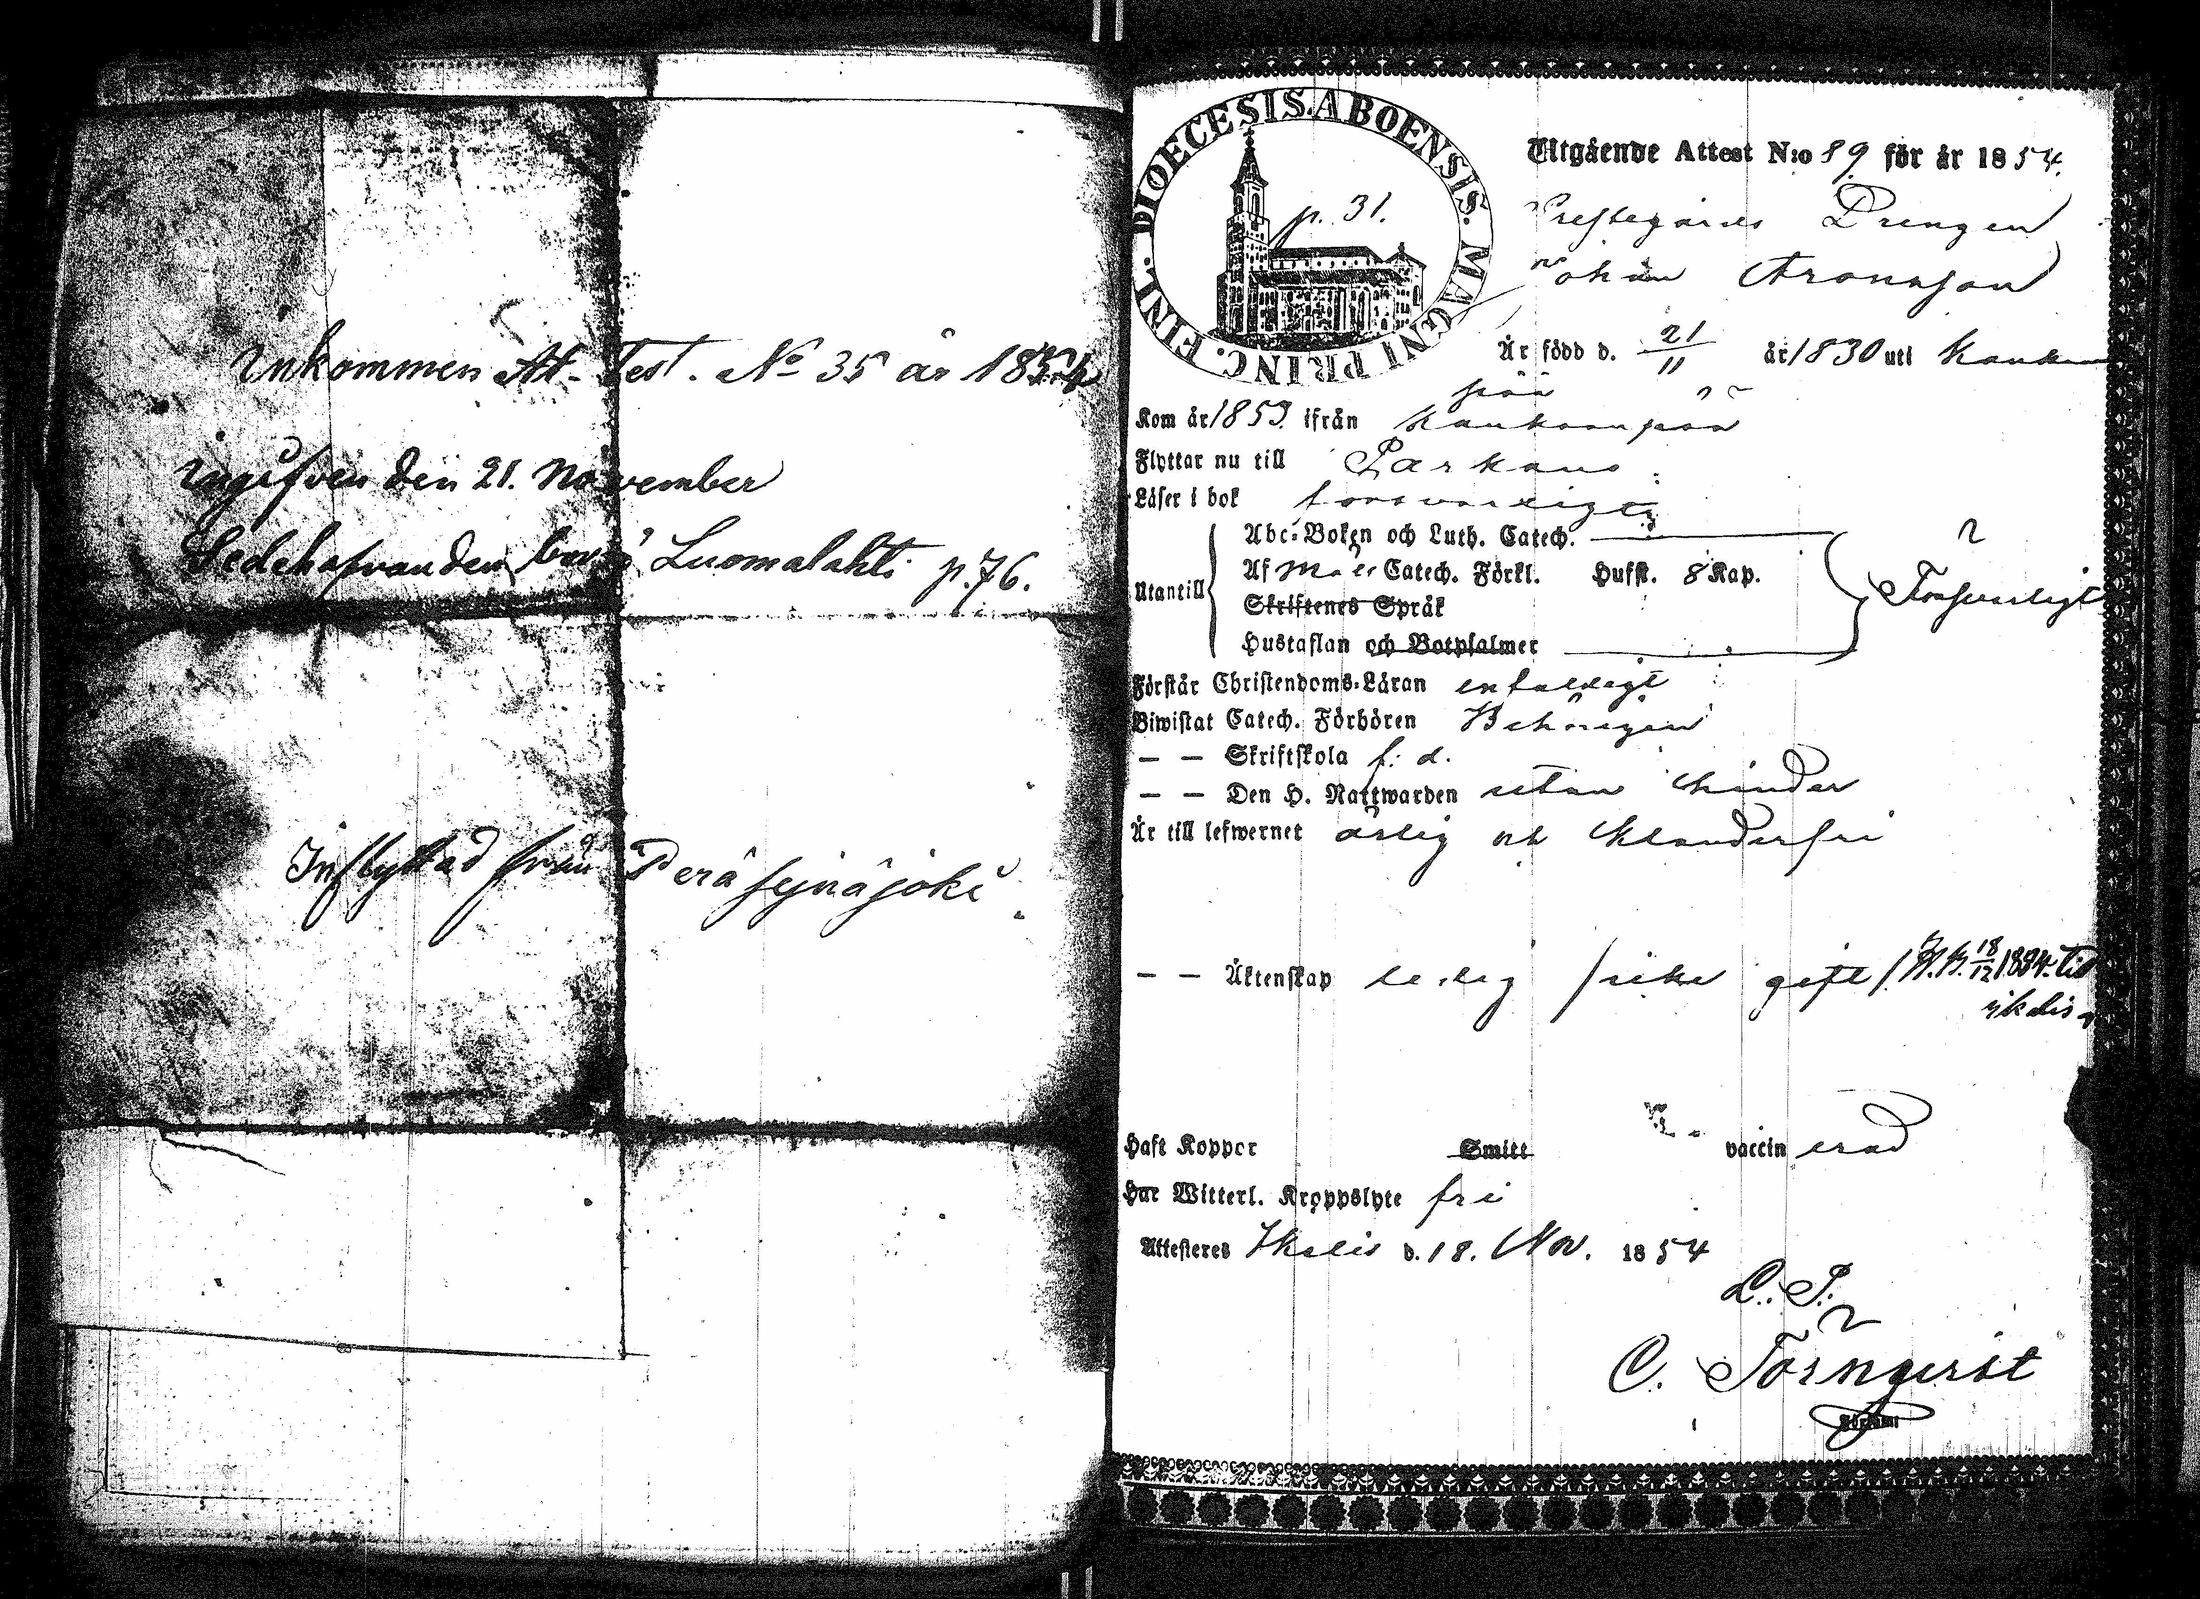 Inkommen At-Test. No 35 år 1854
ingifven den 21. November
Sedelhafvanden Luomalahti p.76.
Inflyttad från Peräsejnäjoki
DIOECESIS. ABOENSIS. MAGNI PRINC. FINL.
p. 31.
Utgående Attest N:o 89 för år 1854.
Prestegårds Drengen
Johan Aronsson
Är född d. 21/11 år 1830 uti Kankan
pää
Kom år 1853 ifrån Kankaanpää
Flyttar nu till Parkano
Läser i bok försvarligt
Utantill
Abc-Boken och Luth. Catech.
Af Catech. Förkl. Hufst. 8 Kap.
Skriftenes Språk
Hustaflan och Botpsalmer
Försvarligt
Förstår Christendoms-Läran enfaldigt
Biwistat Catech. Förhören Behörigen
— — Skriftskola f. d.
— — Den H. Nattwarden utan hinder
Är till lefwernet ärlig och klanderfri
— — Äktenskap ledig /icke gift/ 18/12 till
Ikalis
Haft Koppor Smitt vaccinerad
Har Witterl. Kroppslyte fri
Attesteres Ikalis d. 18. Nov. 1854
L. P.
C. Törnqvist